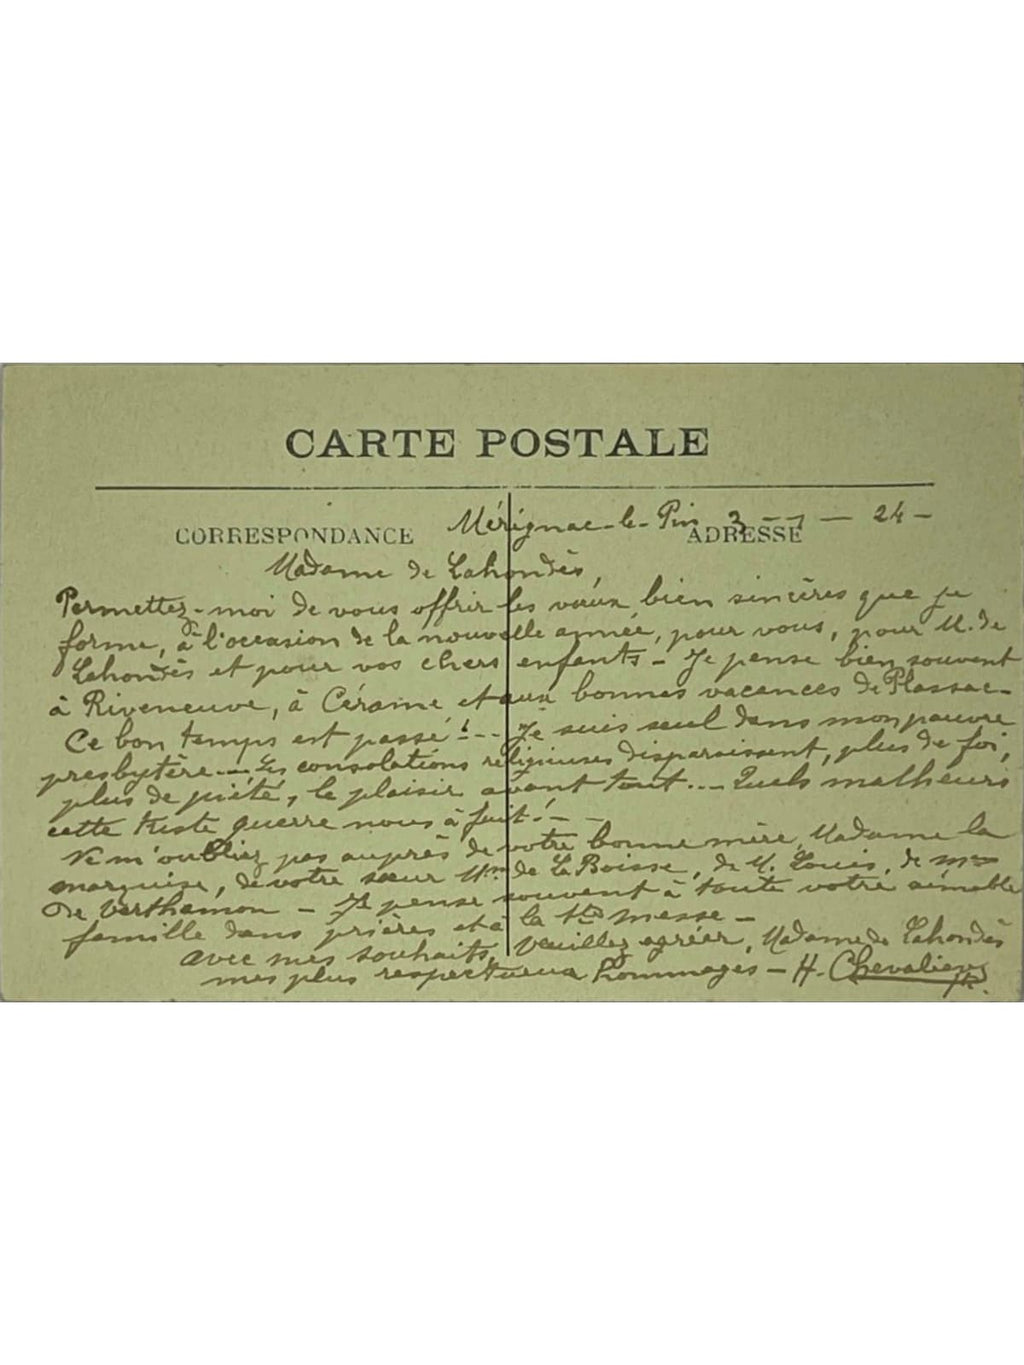 CARTE POSTALE
CORRESPONDANCE
ADRESSE
Mérignac-le-Pin 3 - 1 - 24 -
Madame de Lahondès,
Permettez-moi de vous offrir les vœux bien sincères que je
forme, à l'occasion de la nouvelle année, pour vous, pour M. de
Lahondès et pour vos chers enfants - Je pense bien souvent
à Riveneuve, à Cérame et aux bonnes vacances de Plassac -
Ce bon temps est passé ! --- Je suis seul dans mon pauvre
presbytère --- Les consolations religieuses disparaissent, plus de foi,
plus de piété, le plaisir avant tout --- Quels malheurs
cette triste guerre nous a fait ! - -
Ne m'oubliez pas auprès de votre bonne mère, Madame la
marquise, de votre sœur Mme de La Boisse, de M. Louis, de Mme
De Verthamon - Je pense souvent à toute votre aimable
famille dans prières et à la Ste messe -
Veuillez agréer, Madame de Lahondès
avec mes souhaits,
mes plus respectueux hommages - H. Chevalier